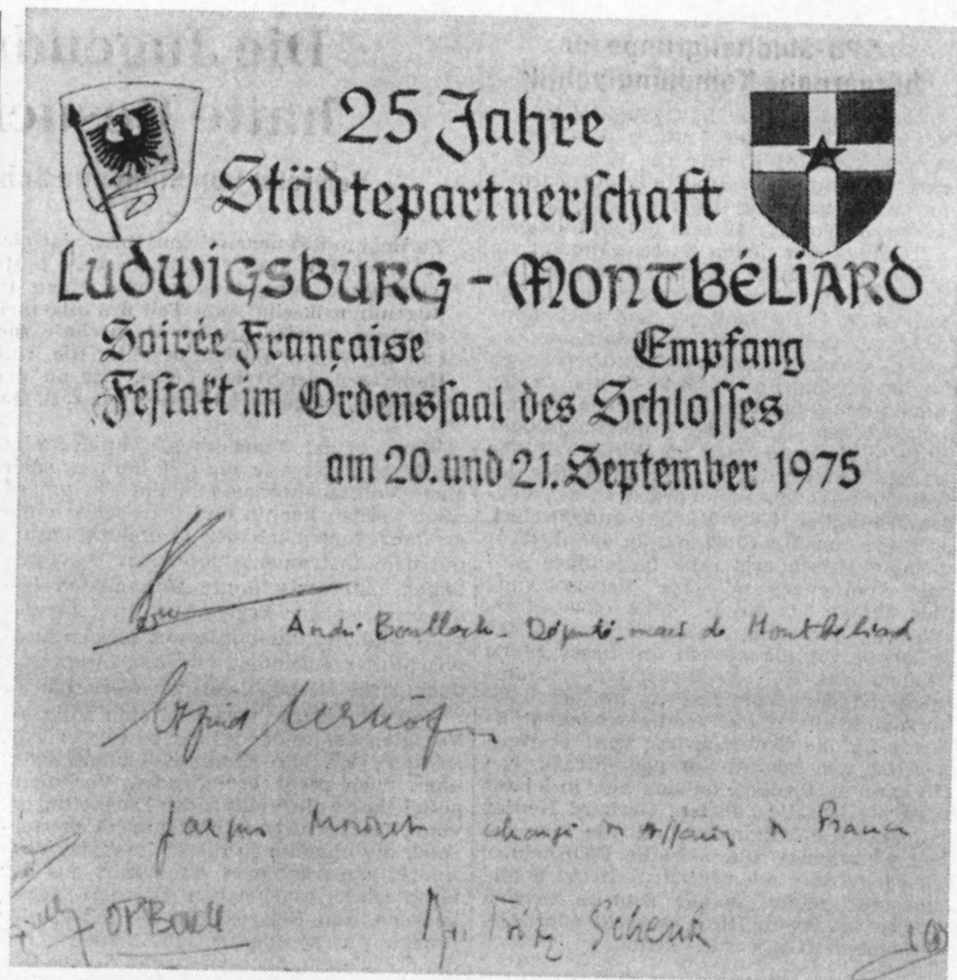 25 Jahre
Städtepartnerschaft
LUDWIGSBURG - MONTBÉLIARD
Soirée Française Empfang
Festakt im Ordenssaal des Schlosses
am 20. und 21. September 1975
André Boulloch - Député-maire de Montbéliard
Jacques chargé d'affaires de France
Dr. Fritz Schenk